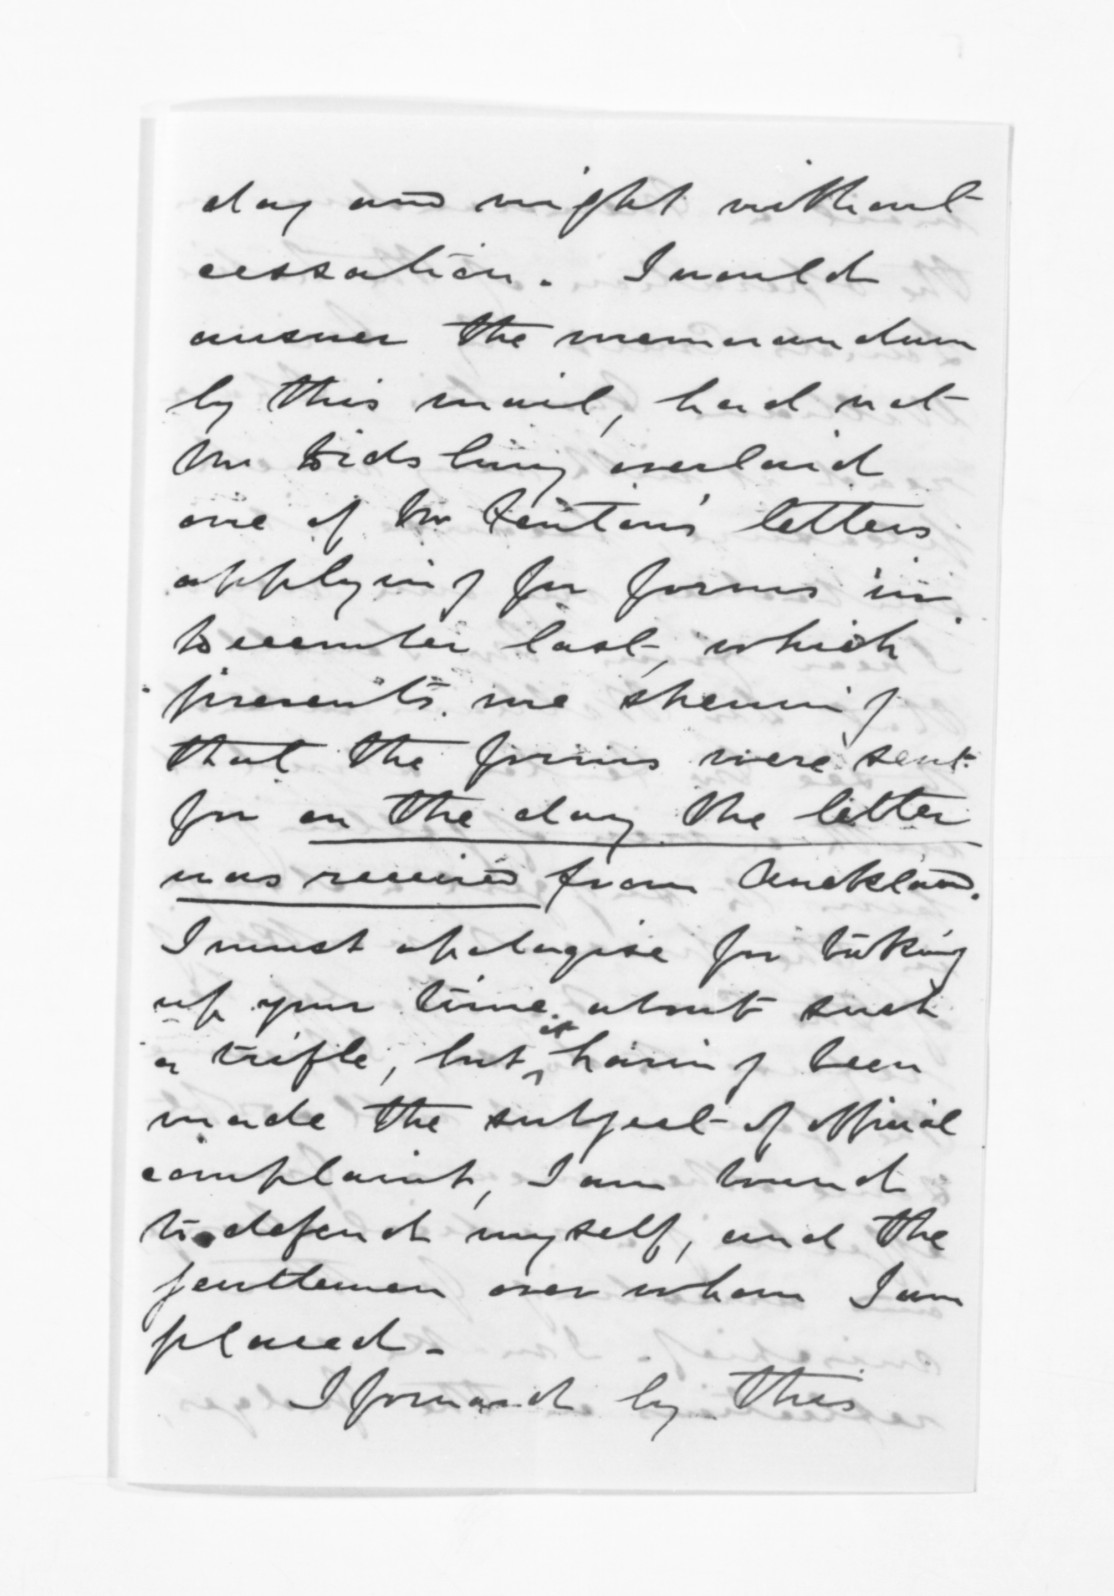 day and night without
cessation. I would
answer the memorandum
by this mail, had not
Mr Didsbury overlaid
one of Mr Fenton's letters
applying for forms in
December last, which
prevents me shewing
that the forms were sent
for on the day the letter
was received from Auckland.
I must apologise for taking
up your time about such
a trifle, but it having been
made the subject of official
complaint, I am bound
to defend myself, and the
gentlemen over whom I am
placed.
I forward by this